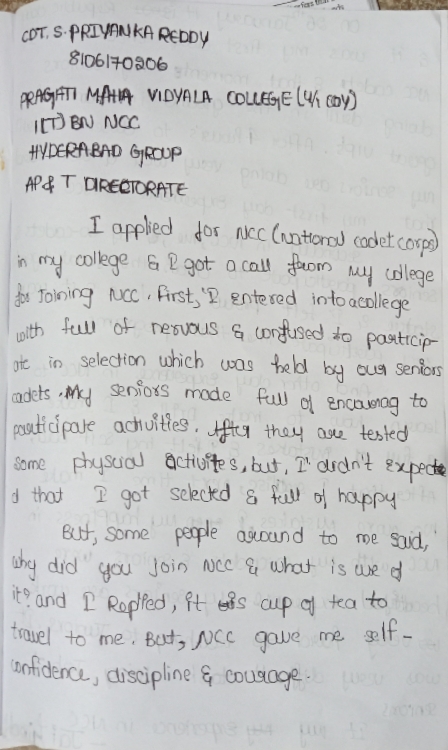 CDT. S. PRIYANKA REDDY
8106170206
PRAGATI MAHA VIDYALA COLLEGE (4/1 COY)
1(T) BN NCC
HYDERABAD GROUP
AP & T DIRECTORATE
I applied for NCC (National cadet corps)
in my college & I got a call from my college
for Joining NCC. First, I entered into a college
with full of nervous & confused to particip-
ate in selection which was held by our seniors
cadets. My seniors made full of encourag to
participate activities. After they are tested
some physical activites, but, I didn't expecte
d that I got selected & full of happy
But, some people around to me said,
why did you join NCC & what is use of
it? and I Replied, it is cup of tea to
travel to me. But, NCC gave me self-
confidence, discipline & courage.